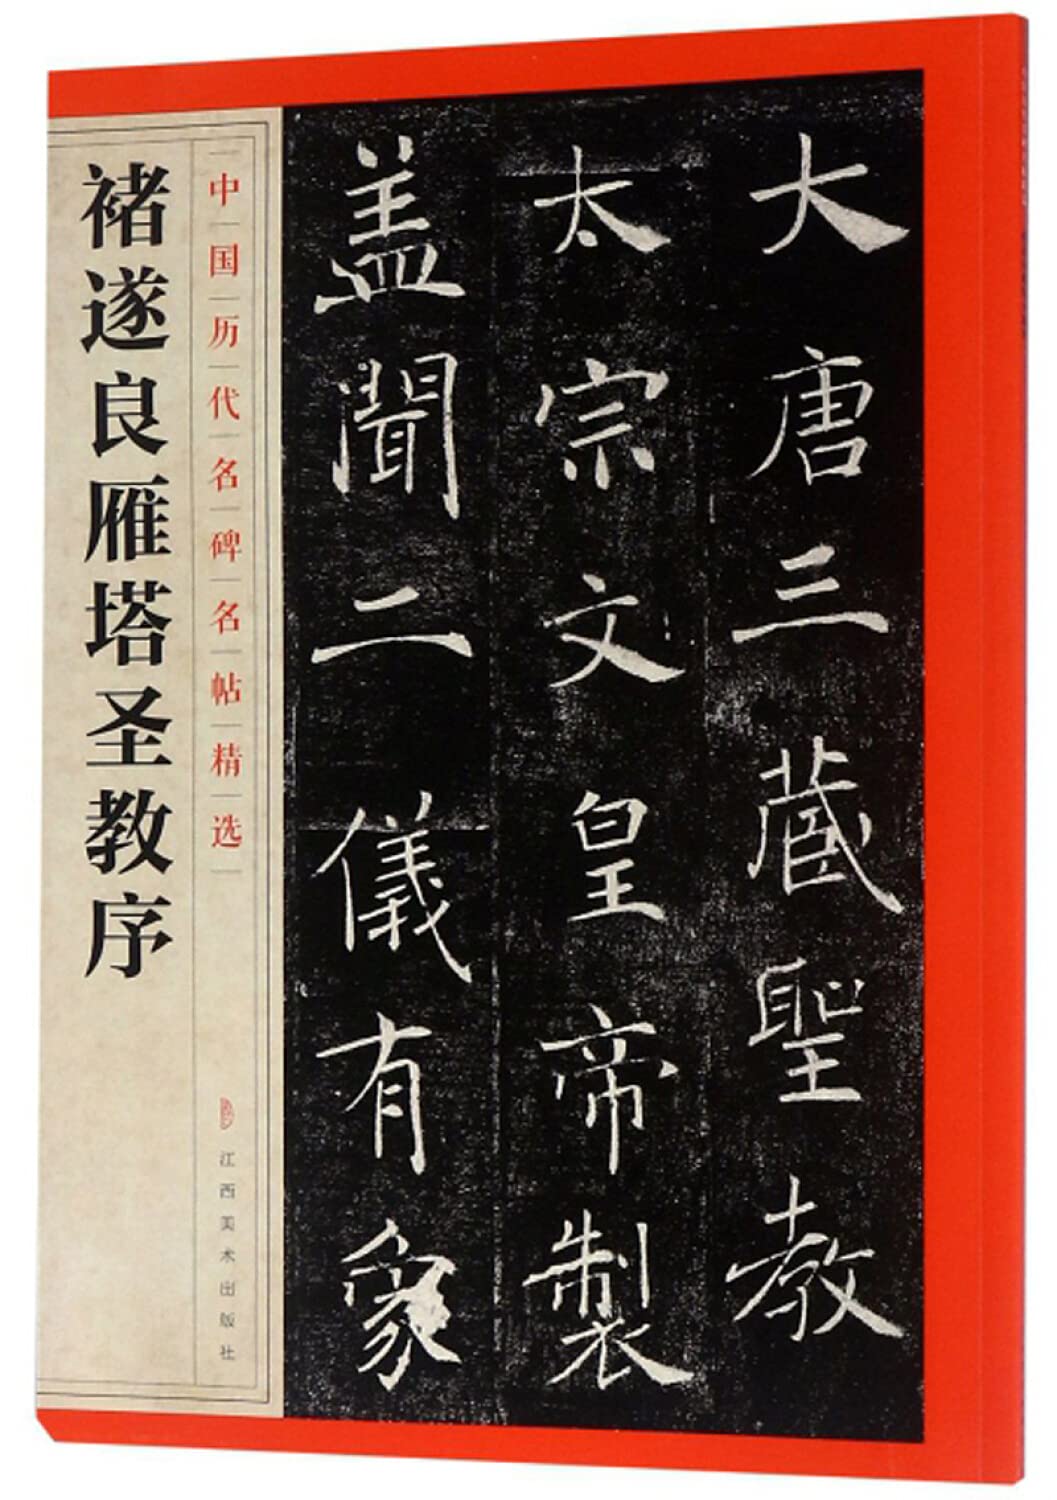 褚遂良雁塔圣教序
中国历代名碑名帖精选
江西美术出版社
大唐三藏聖教
太宗文皇帝製
盖聞二儀有象